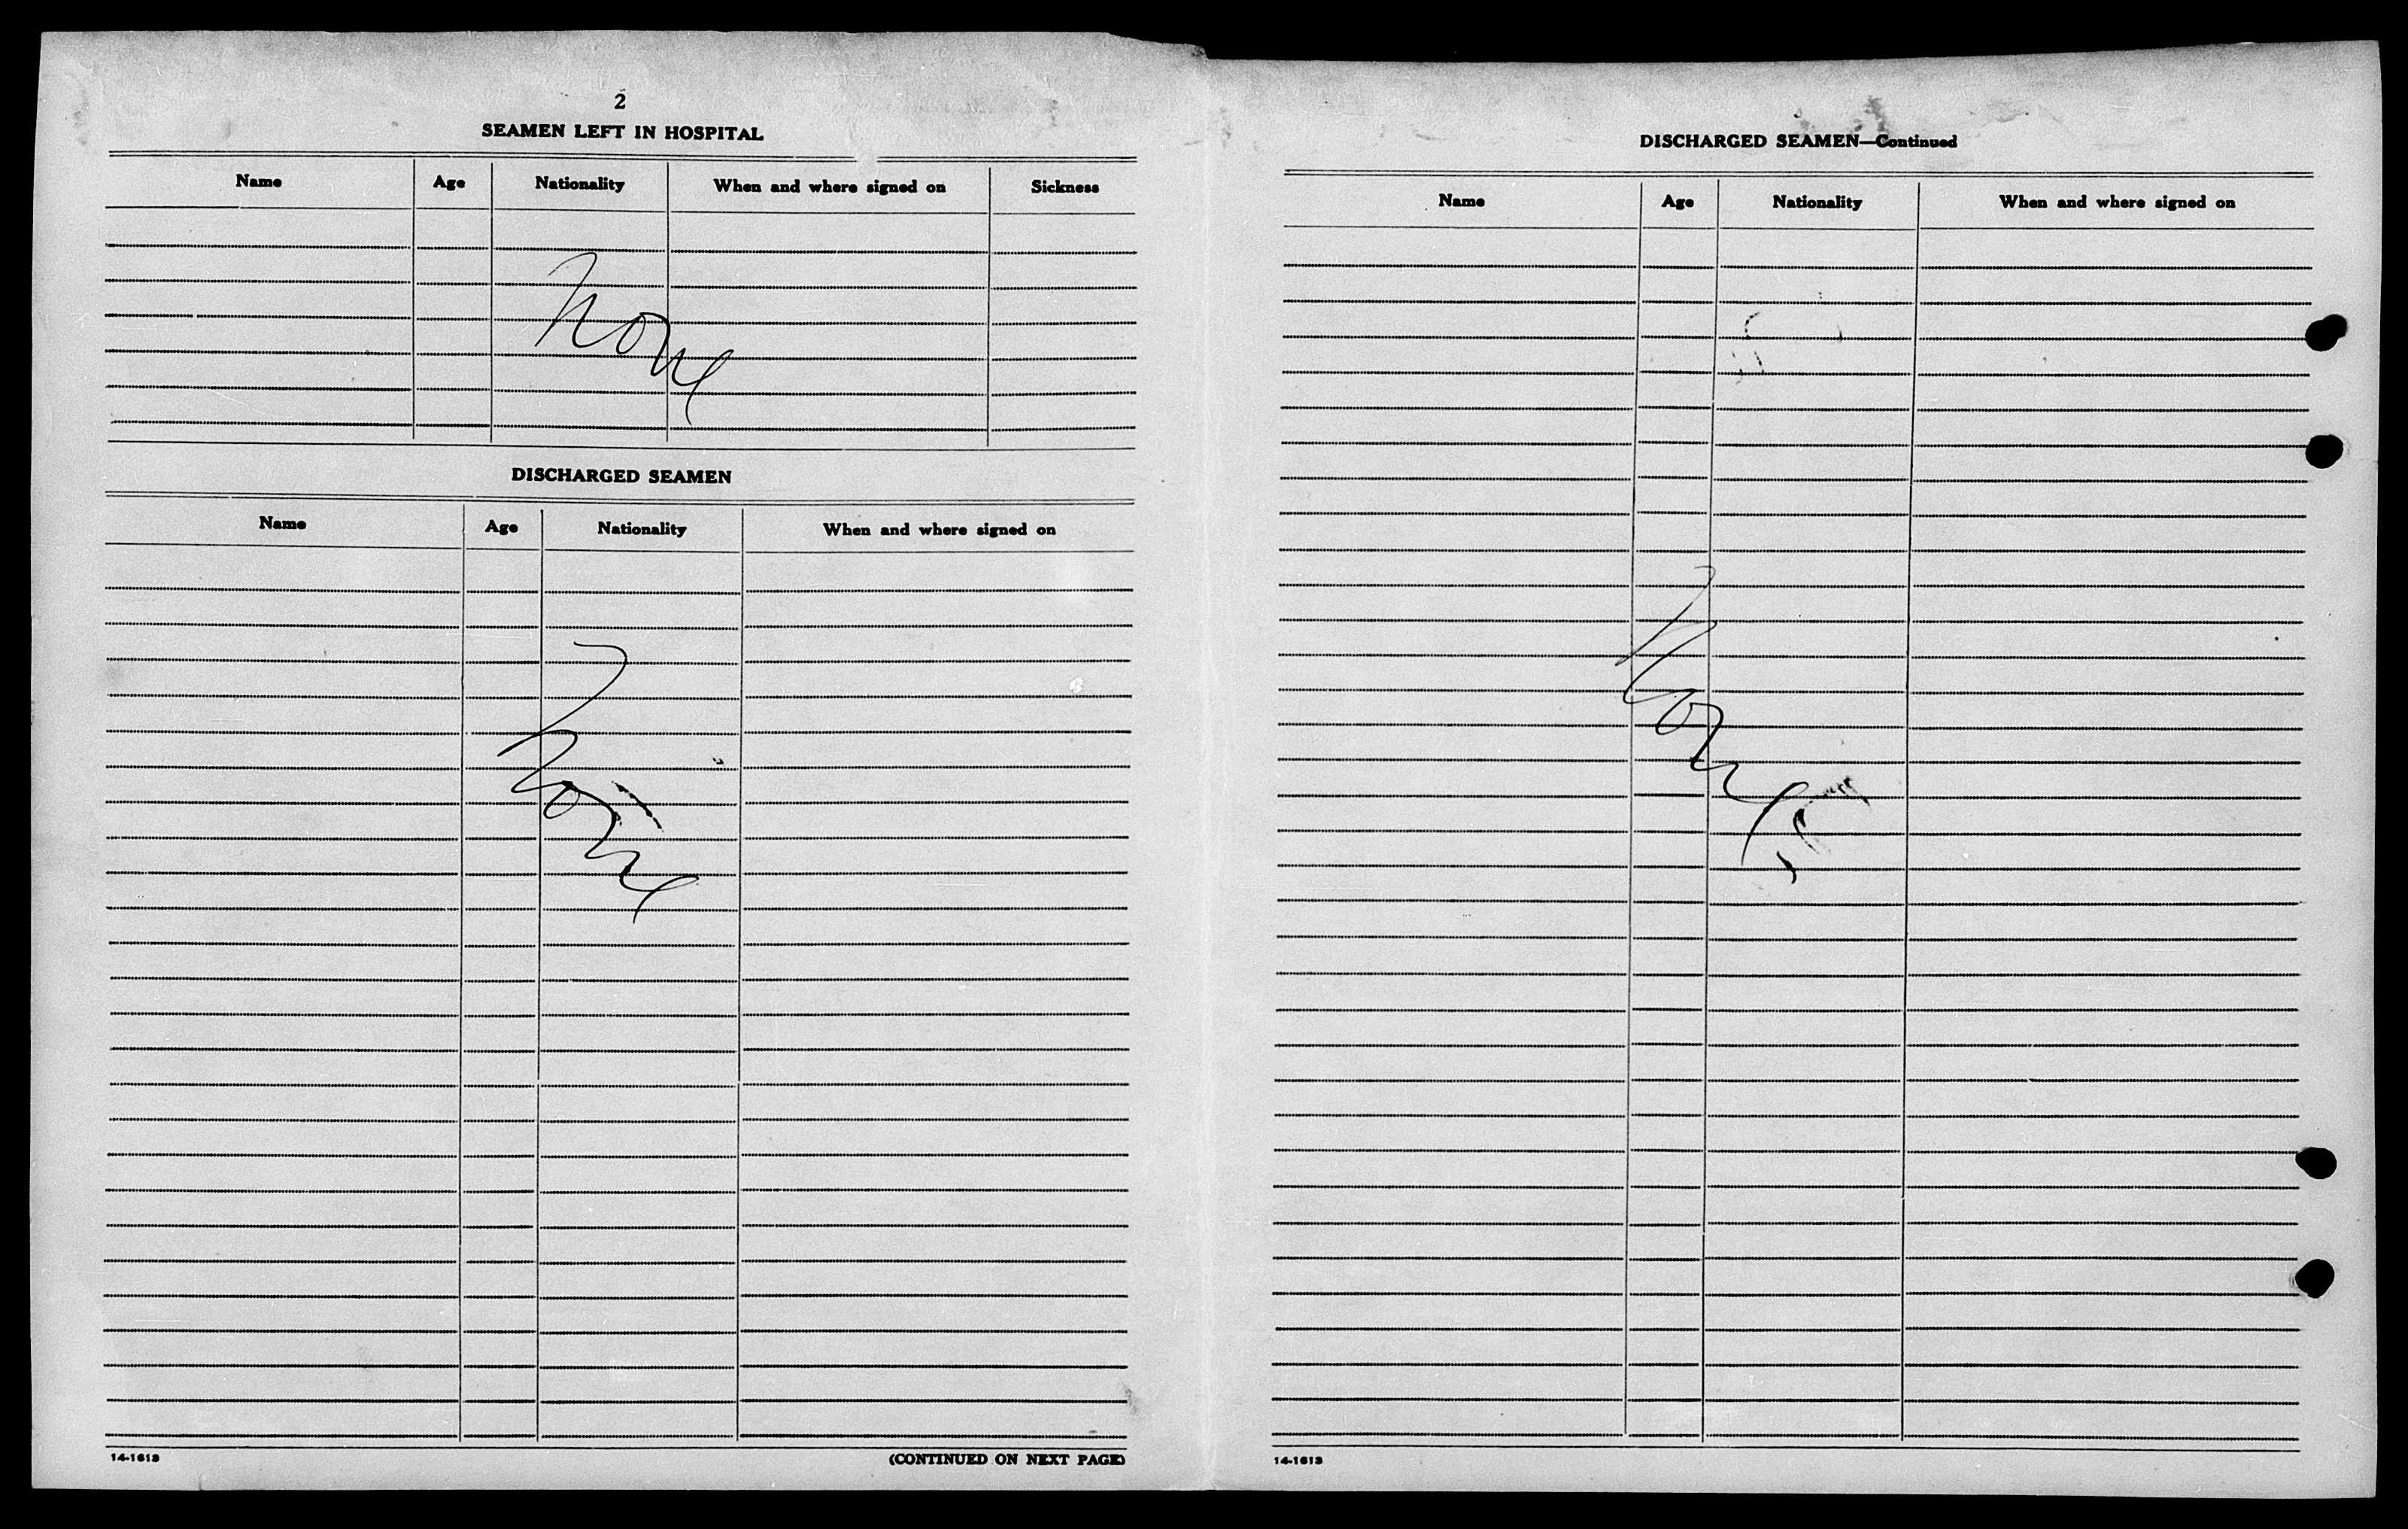 2
SEAMEN LEFT IN HOSPITAL
Name Age Nationality When and where signed on Sickness
None
DISCHARGED SEAMEN
Name Age Nationality When and where signed on
None
14-1613
(CONTINUED ON NEXT PAGE)
DISCHARGED SEAMEN—Continued
Name Age Nationality When and where signed on
None
14-1613